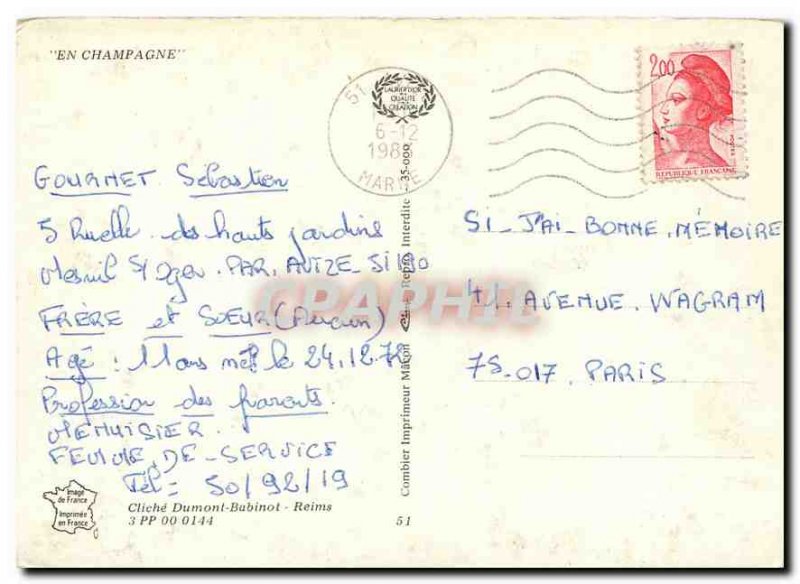 "EN CHAMPAGNE"
51
LAURIER D'OR
DE LA
QUALITE
CREATION
6-12
198
MARNE
2,00
REPUBLIQUE FRANÇAISE
GOURMET Sébastien
5 Ruelle des hauts jardins
Mesnil S/ Oger. PAR. AVIZE 51190
FRÈRE et SOEUR (Aucun)
Agé : 11 ans né le 24.12.72
Profession des parents.
MENUISIER.
FEMME DE-SERVICE
Tél = 50/92/19
SI-J'AI-BONNE, MÉMOIRE
41. AVENUE. WAGRAM
75.017. PARIS
CPAPHIL
Combier Imprimeur Mâcon Repro Interdite 35-009
Image
de France
Imprimée
en France
Cliché Dumont-Babinot - Reims
3 PP 00 0144
51